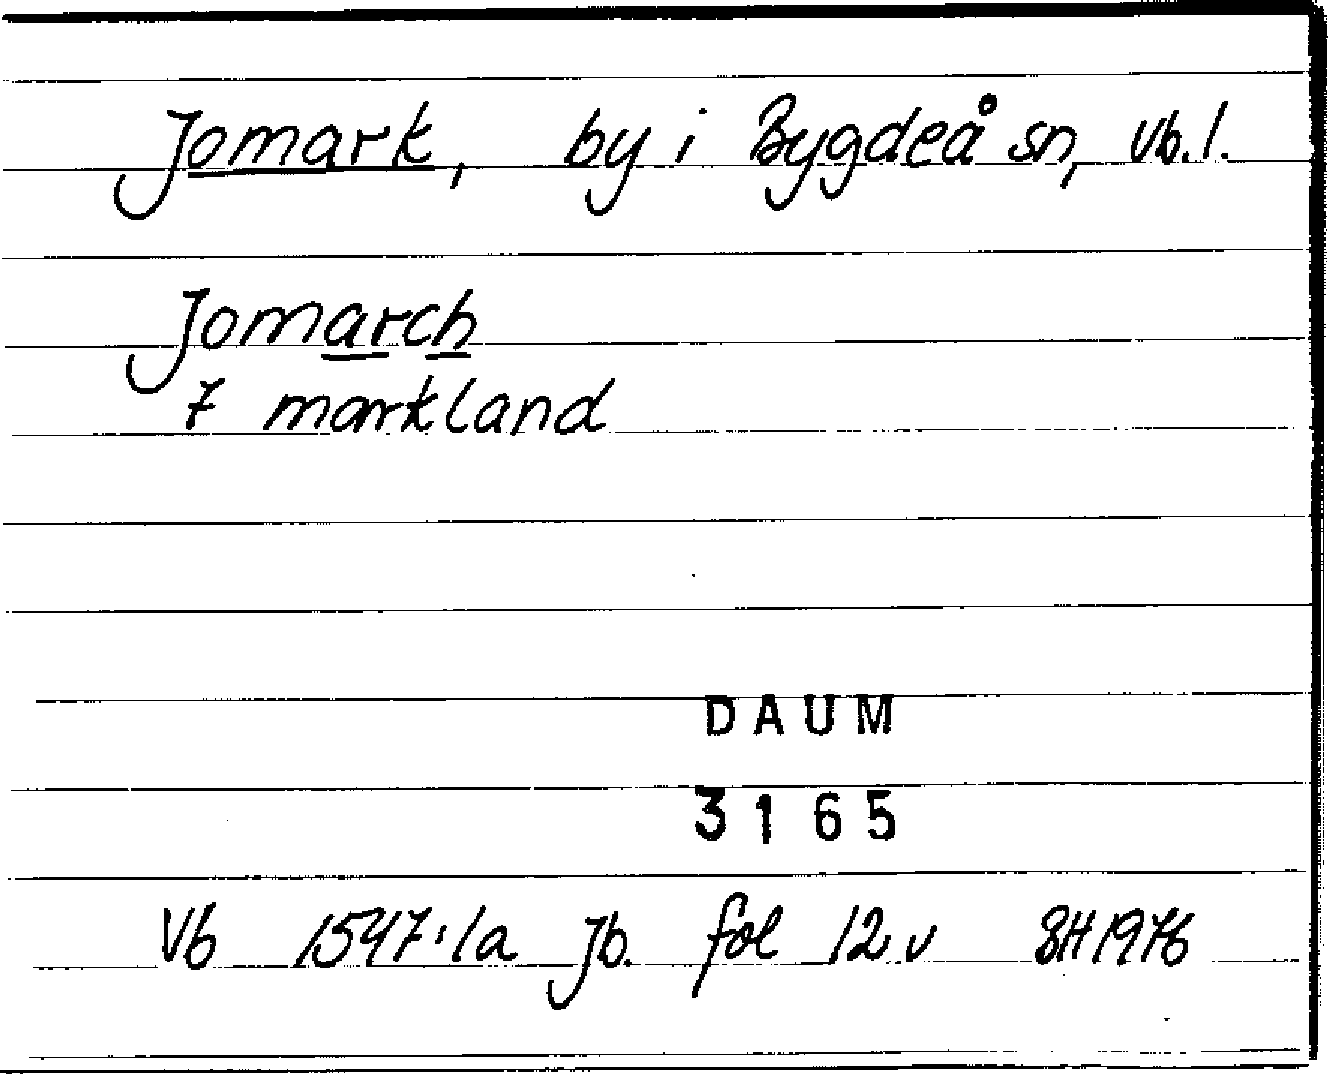 Jomark, by i Bygdeå sn, Vb.l.
Jomarch
7 markland
DAUM
3165
Vb 1547:1a Jb. fol 12 v 8H1976